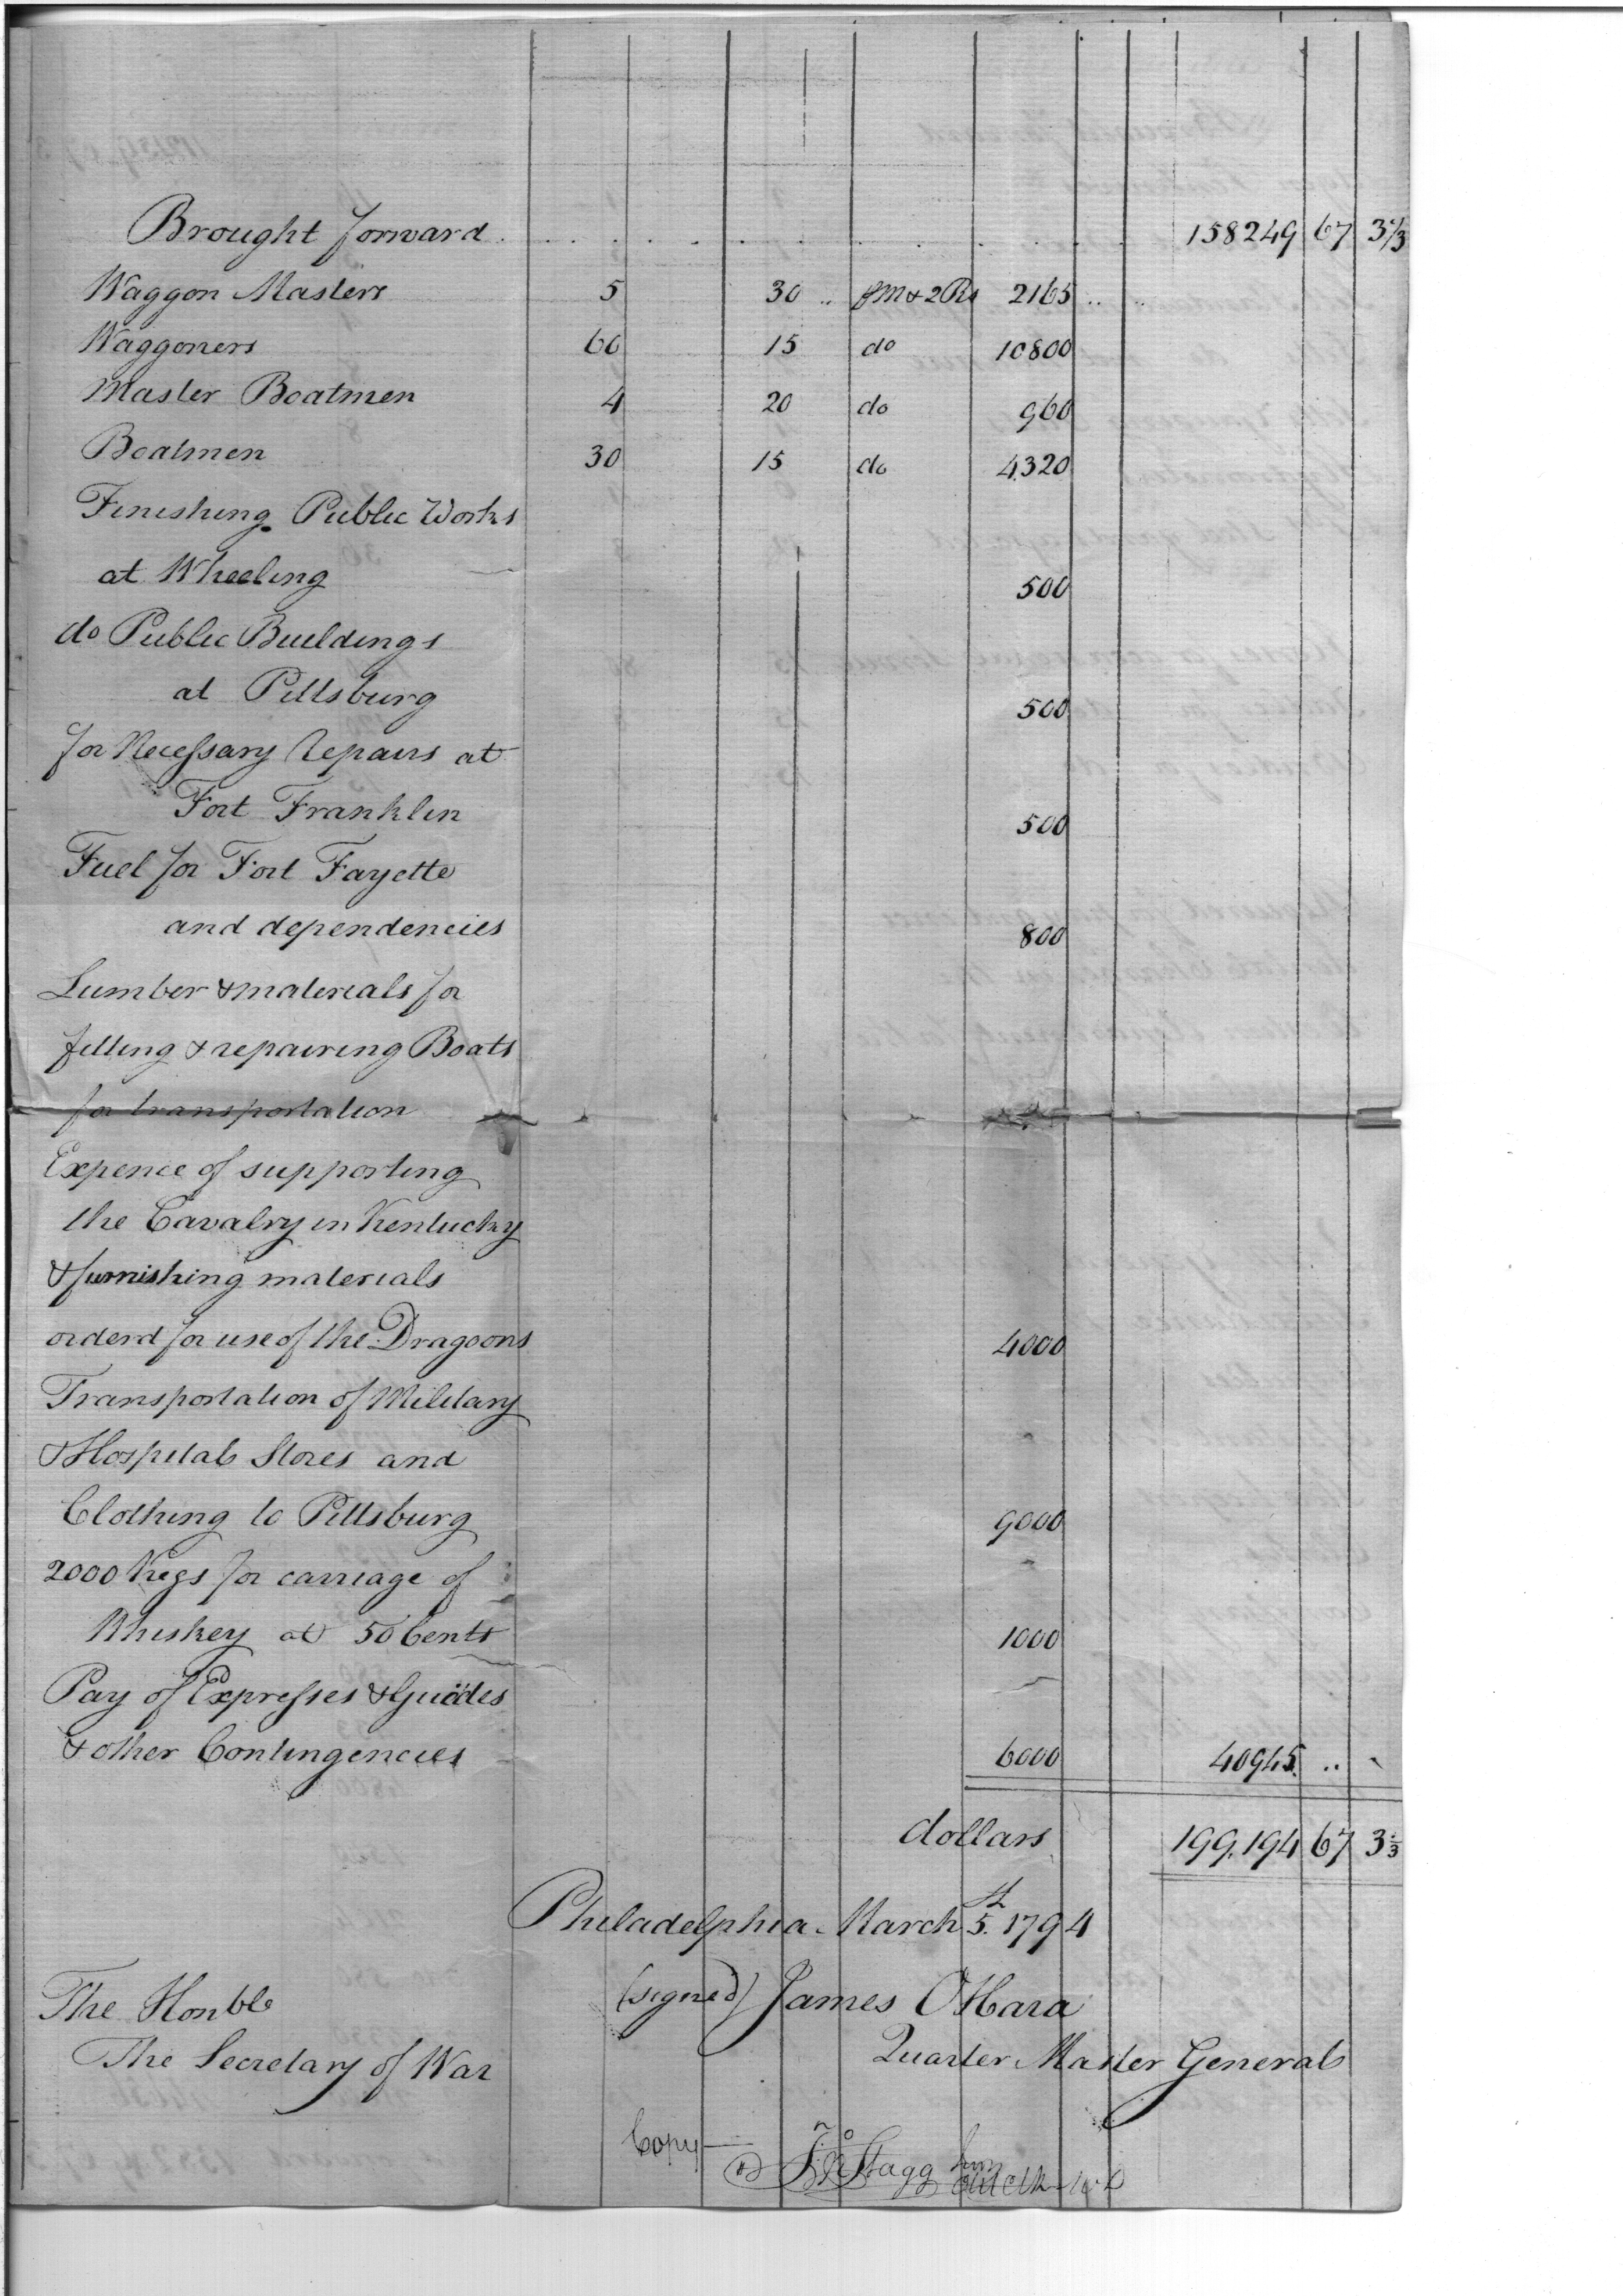 Brought forward . . . . . . . . . . . . 158249 67 3 1/3
Waggon Masters 5 30 .. pM & 2 Rs 2165 .. ..
Waggoners 60 15 do 10800
Master Boatmen 4 20 do 960
Boatmen 30 15 do 4320
Finishing Public Works
at Wheeling 500
do Public Buildings
at Pittsburg 500
for Necessary repairs at
Fort Franklin 500
Fuel for Fort Fayette
and dependencies 800
Lumber & materials for
fitting & repairing Boats
for transportation
Expence of supporting
the Cavalry in Kentucky
& furnishing materials
orderd for use of the Dragoons 4000
Transportation of Military
& Hospital Stores and
Clothing to Pittsburg 9000
2000 Kegs for carriage of
Whiskey at 50 Cents 1000
Pay of Expresses & Guides
& other Contingencies 6000 40945 ..
dollars 199.194 67 3 1/3
Philadelphia March 5th. 1794
(signed) James OHara
Quarter Master General
The Honble
The Secretary of War
Copy
Jno Stagg Junr
Clk